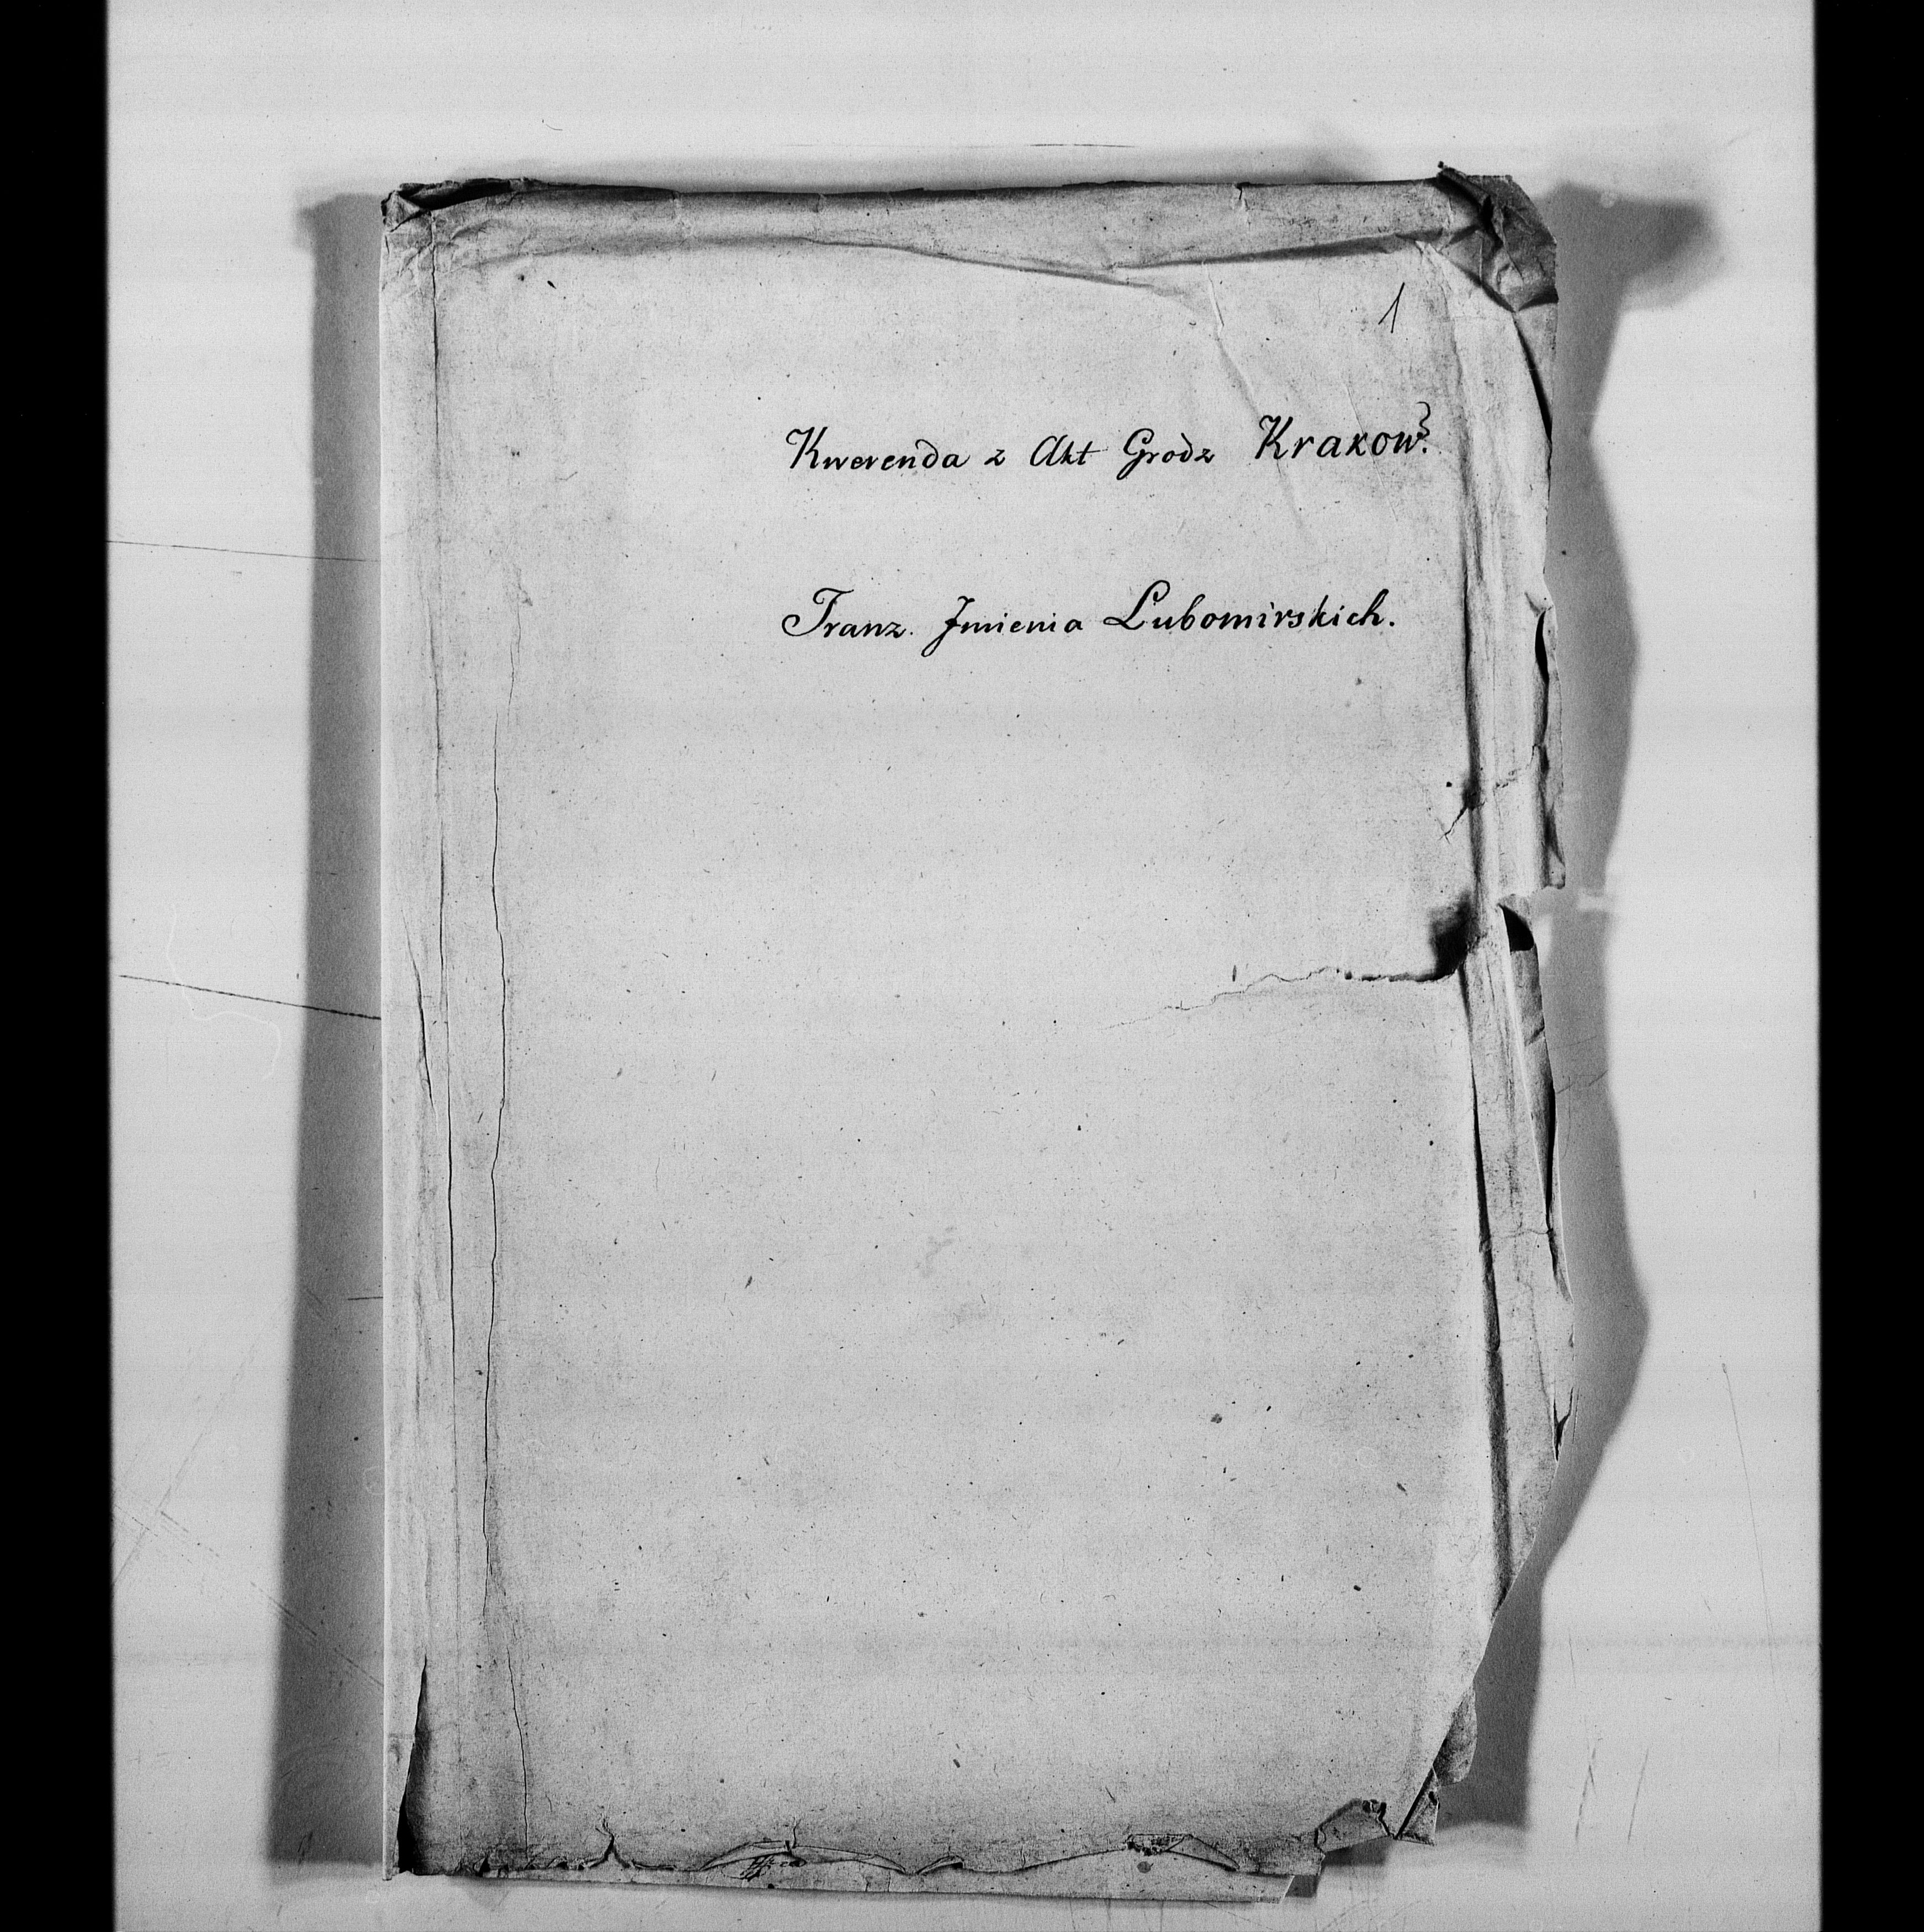 1
Kwerenda z Akt Grodz Krakow.
Tranz. Jmienia Lubomirskich.